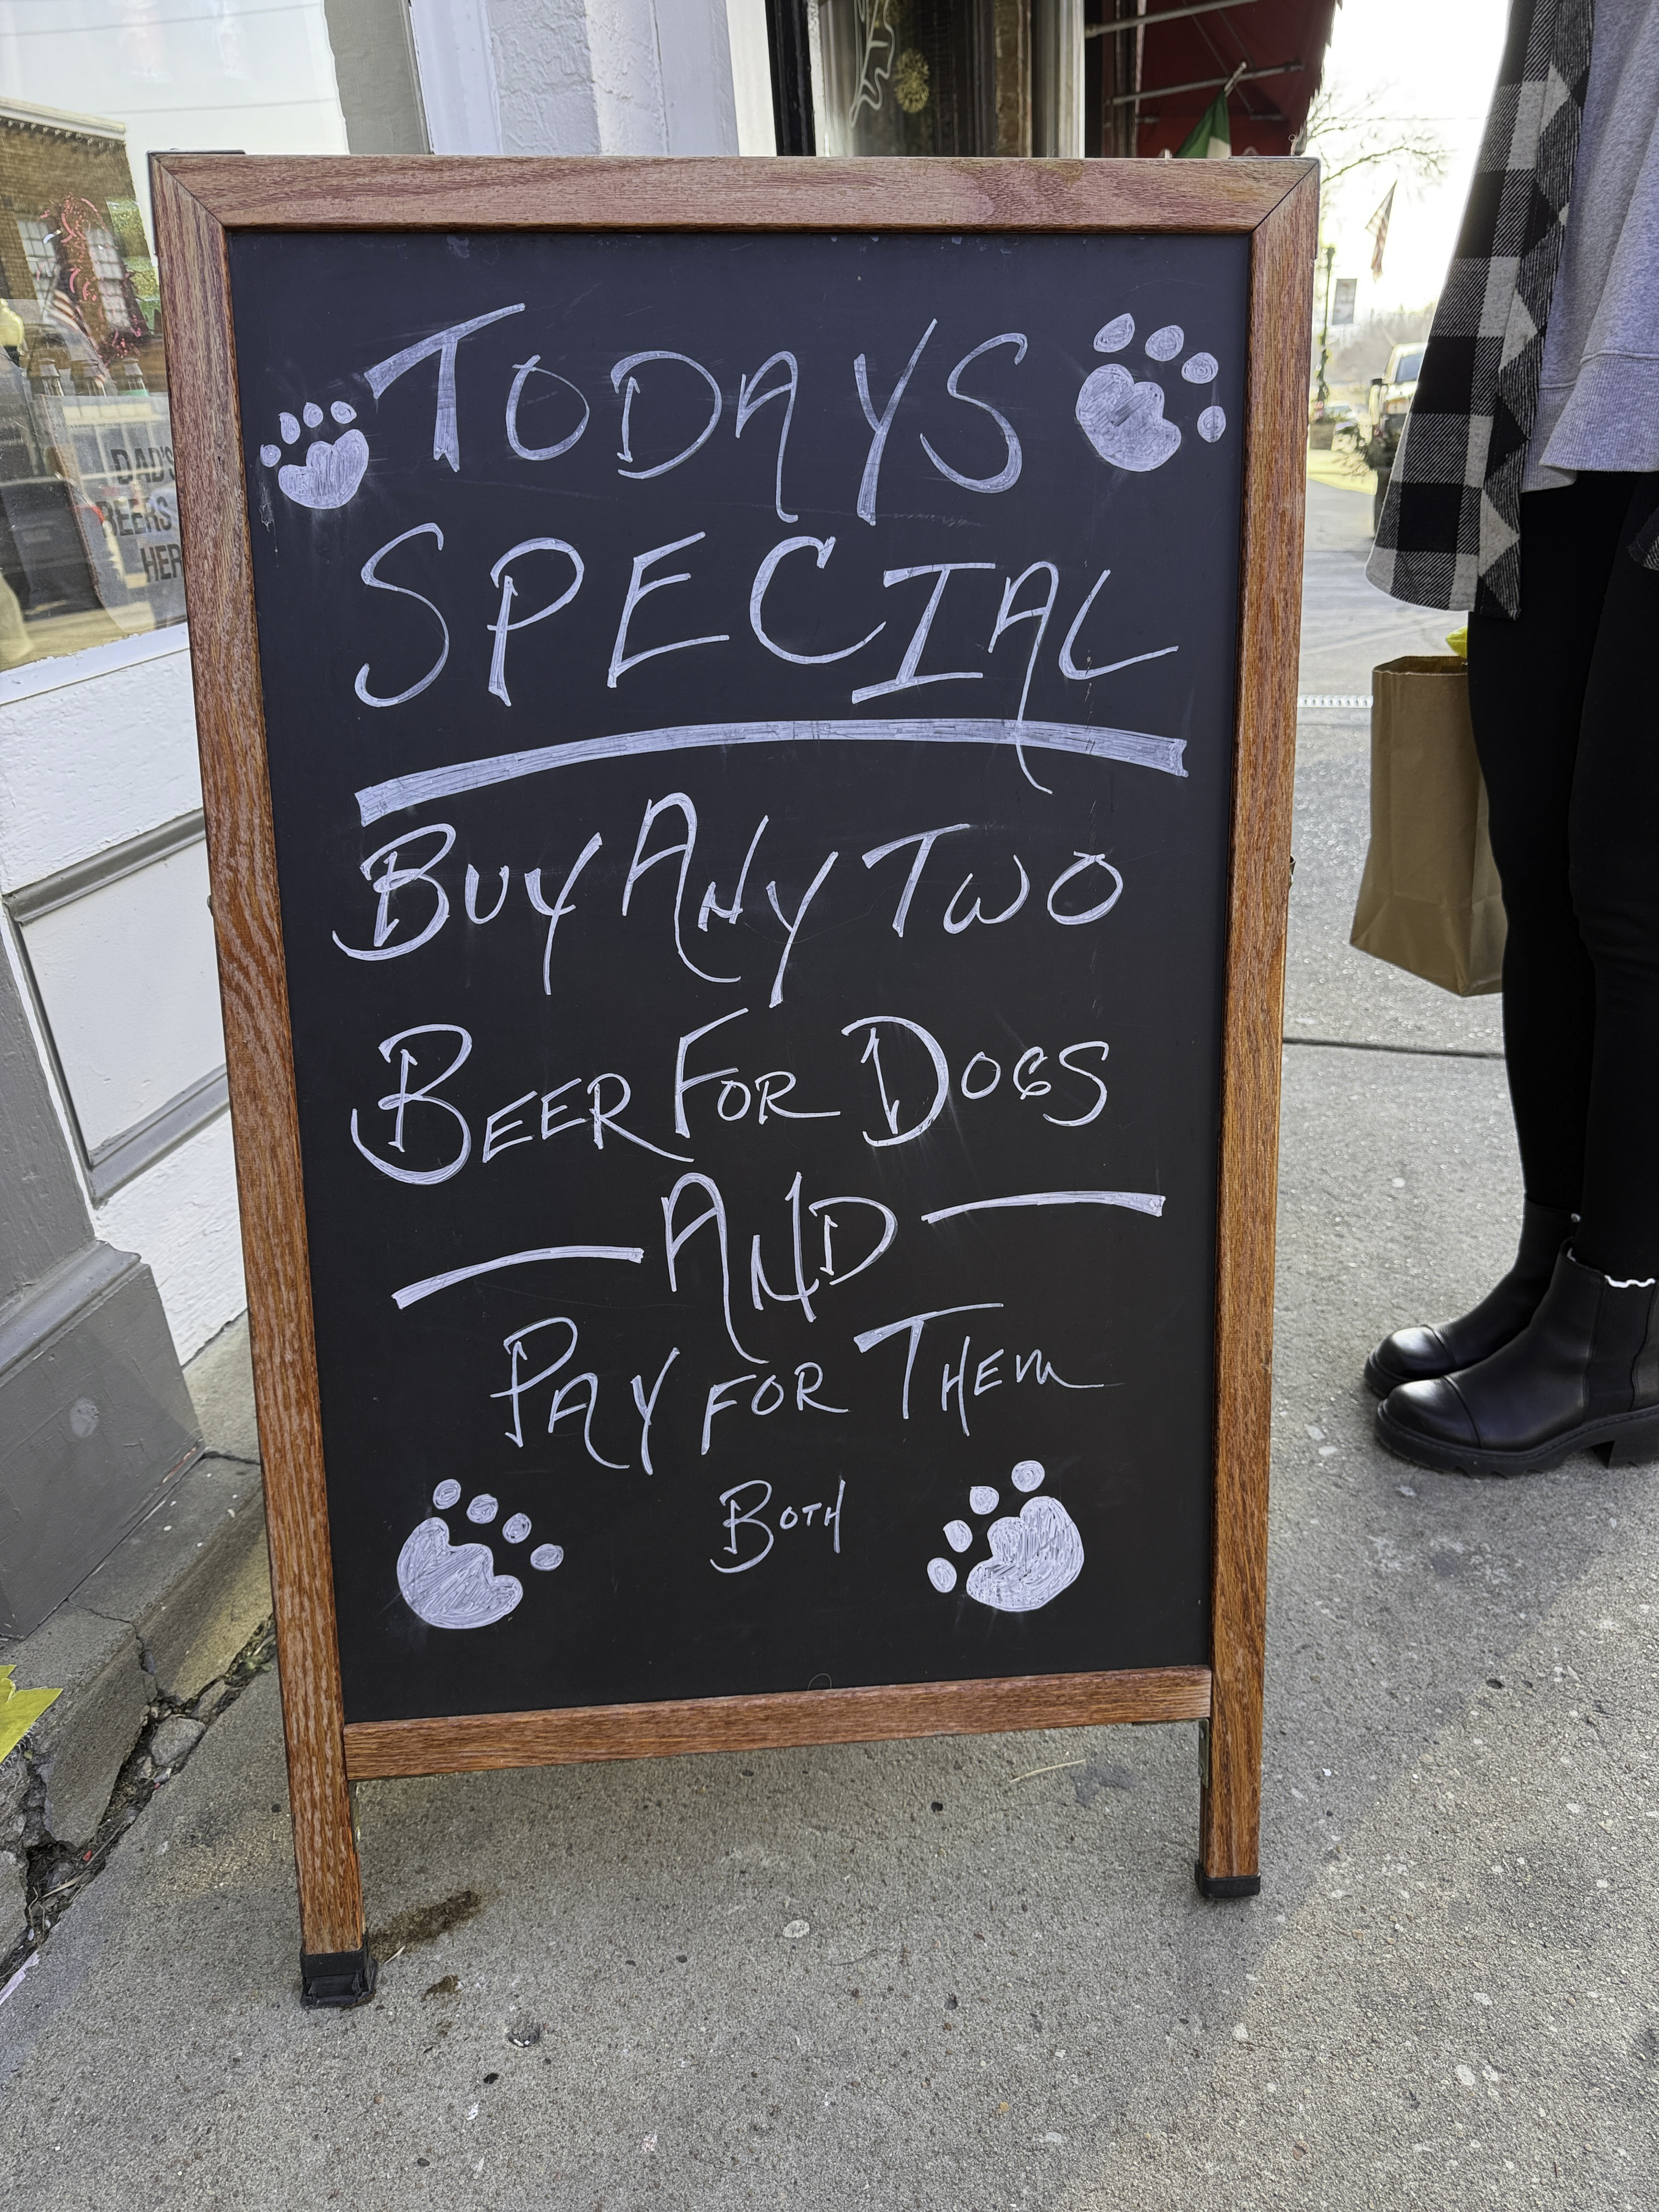 TODAYS
SPECIAL
BUY ANY TWO
BEER FOR DOGS
AND
PAY FOR THEM
BOTH
DAD'S
BEERS
HER